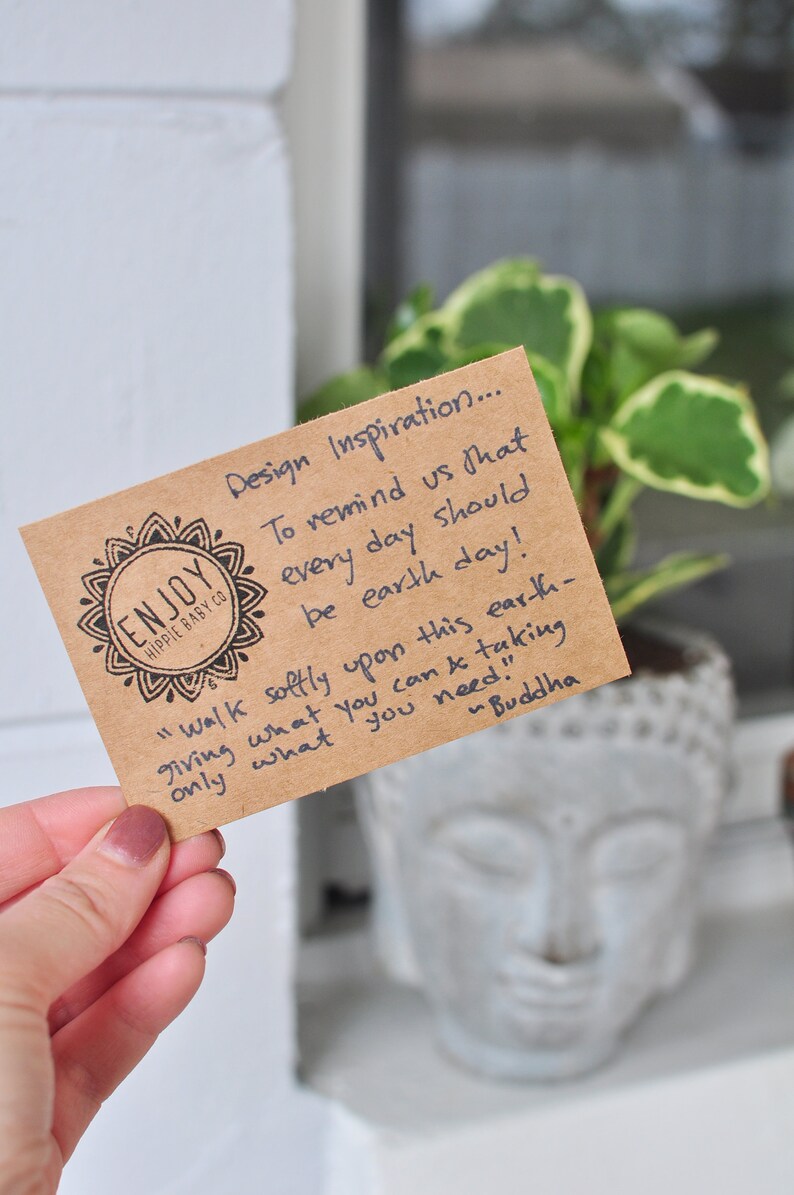 Design Inspiration...
To remind us that
every day should
be earth day!
ENJOY
HIPPIE BABY CO
"Walk softly upon this earth-
giving what you can & taking
only what you need."
~Buddha